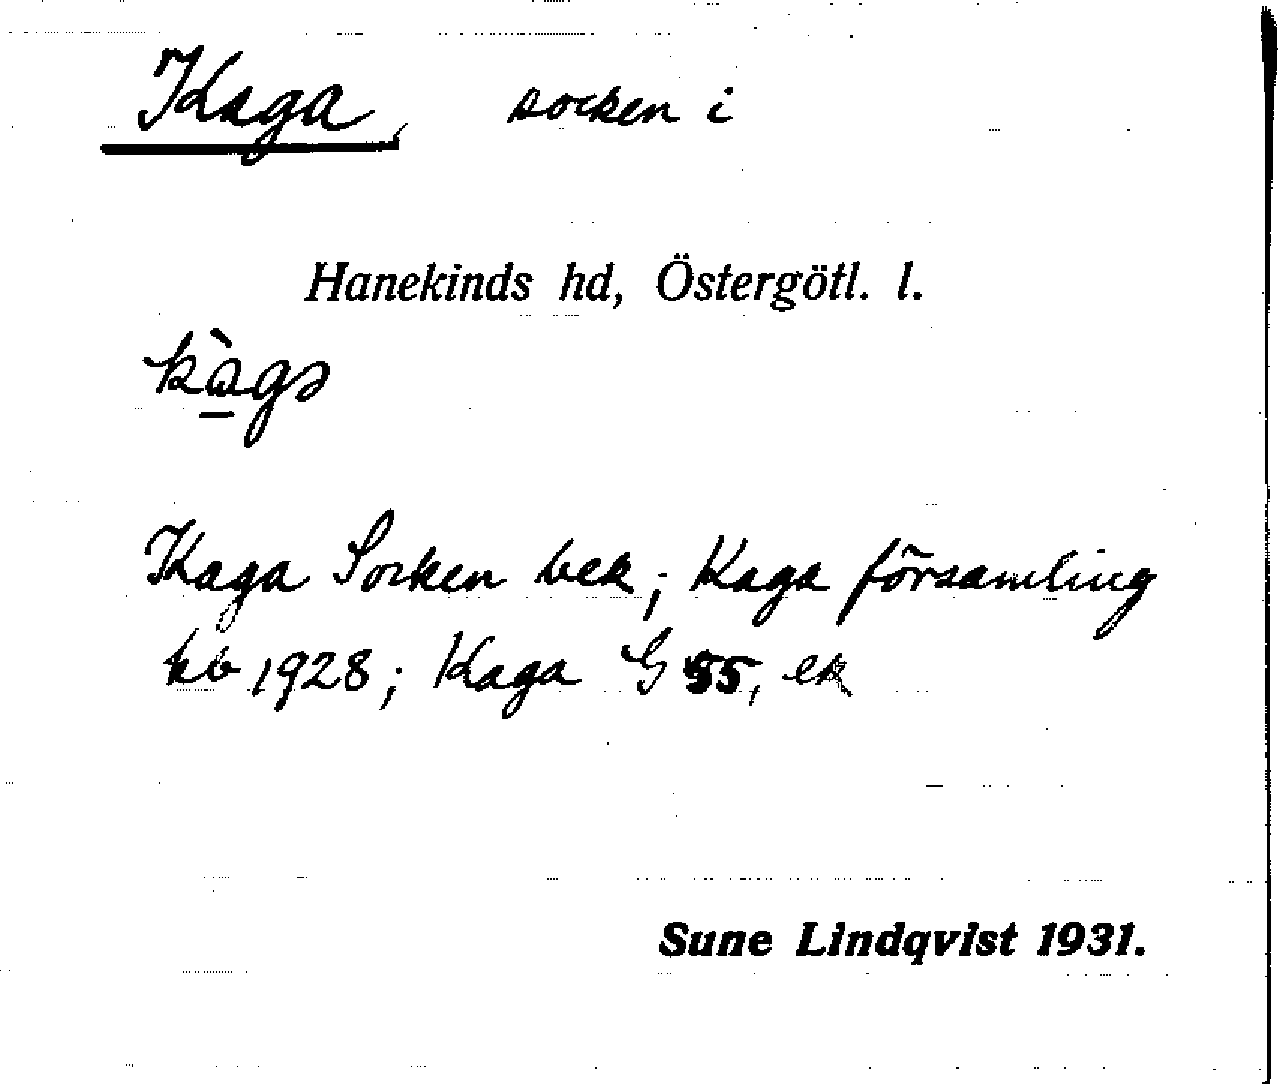 Kaga, socken i
Hanekinds hd, Östergötl. l.
kà̱gə
Kaga Socken bek; Kaga församling
kb 1928; Kaga G 55, ek
Sune Lindqvist 1931.